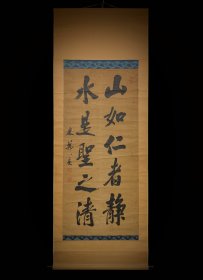 山如仁者静
水是聖之清